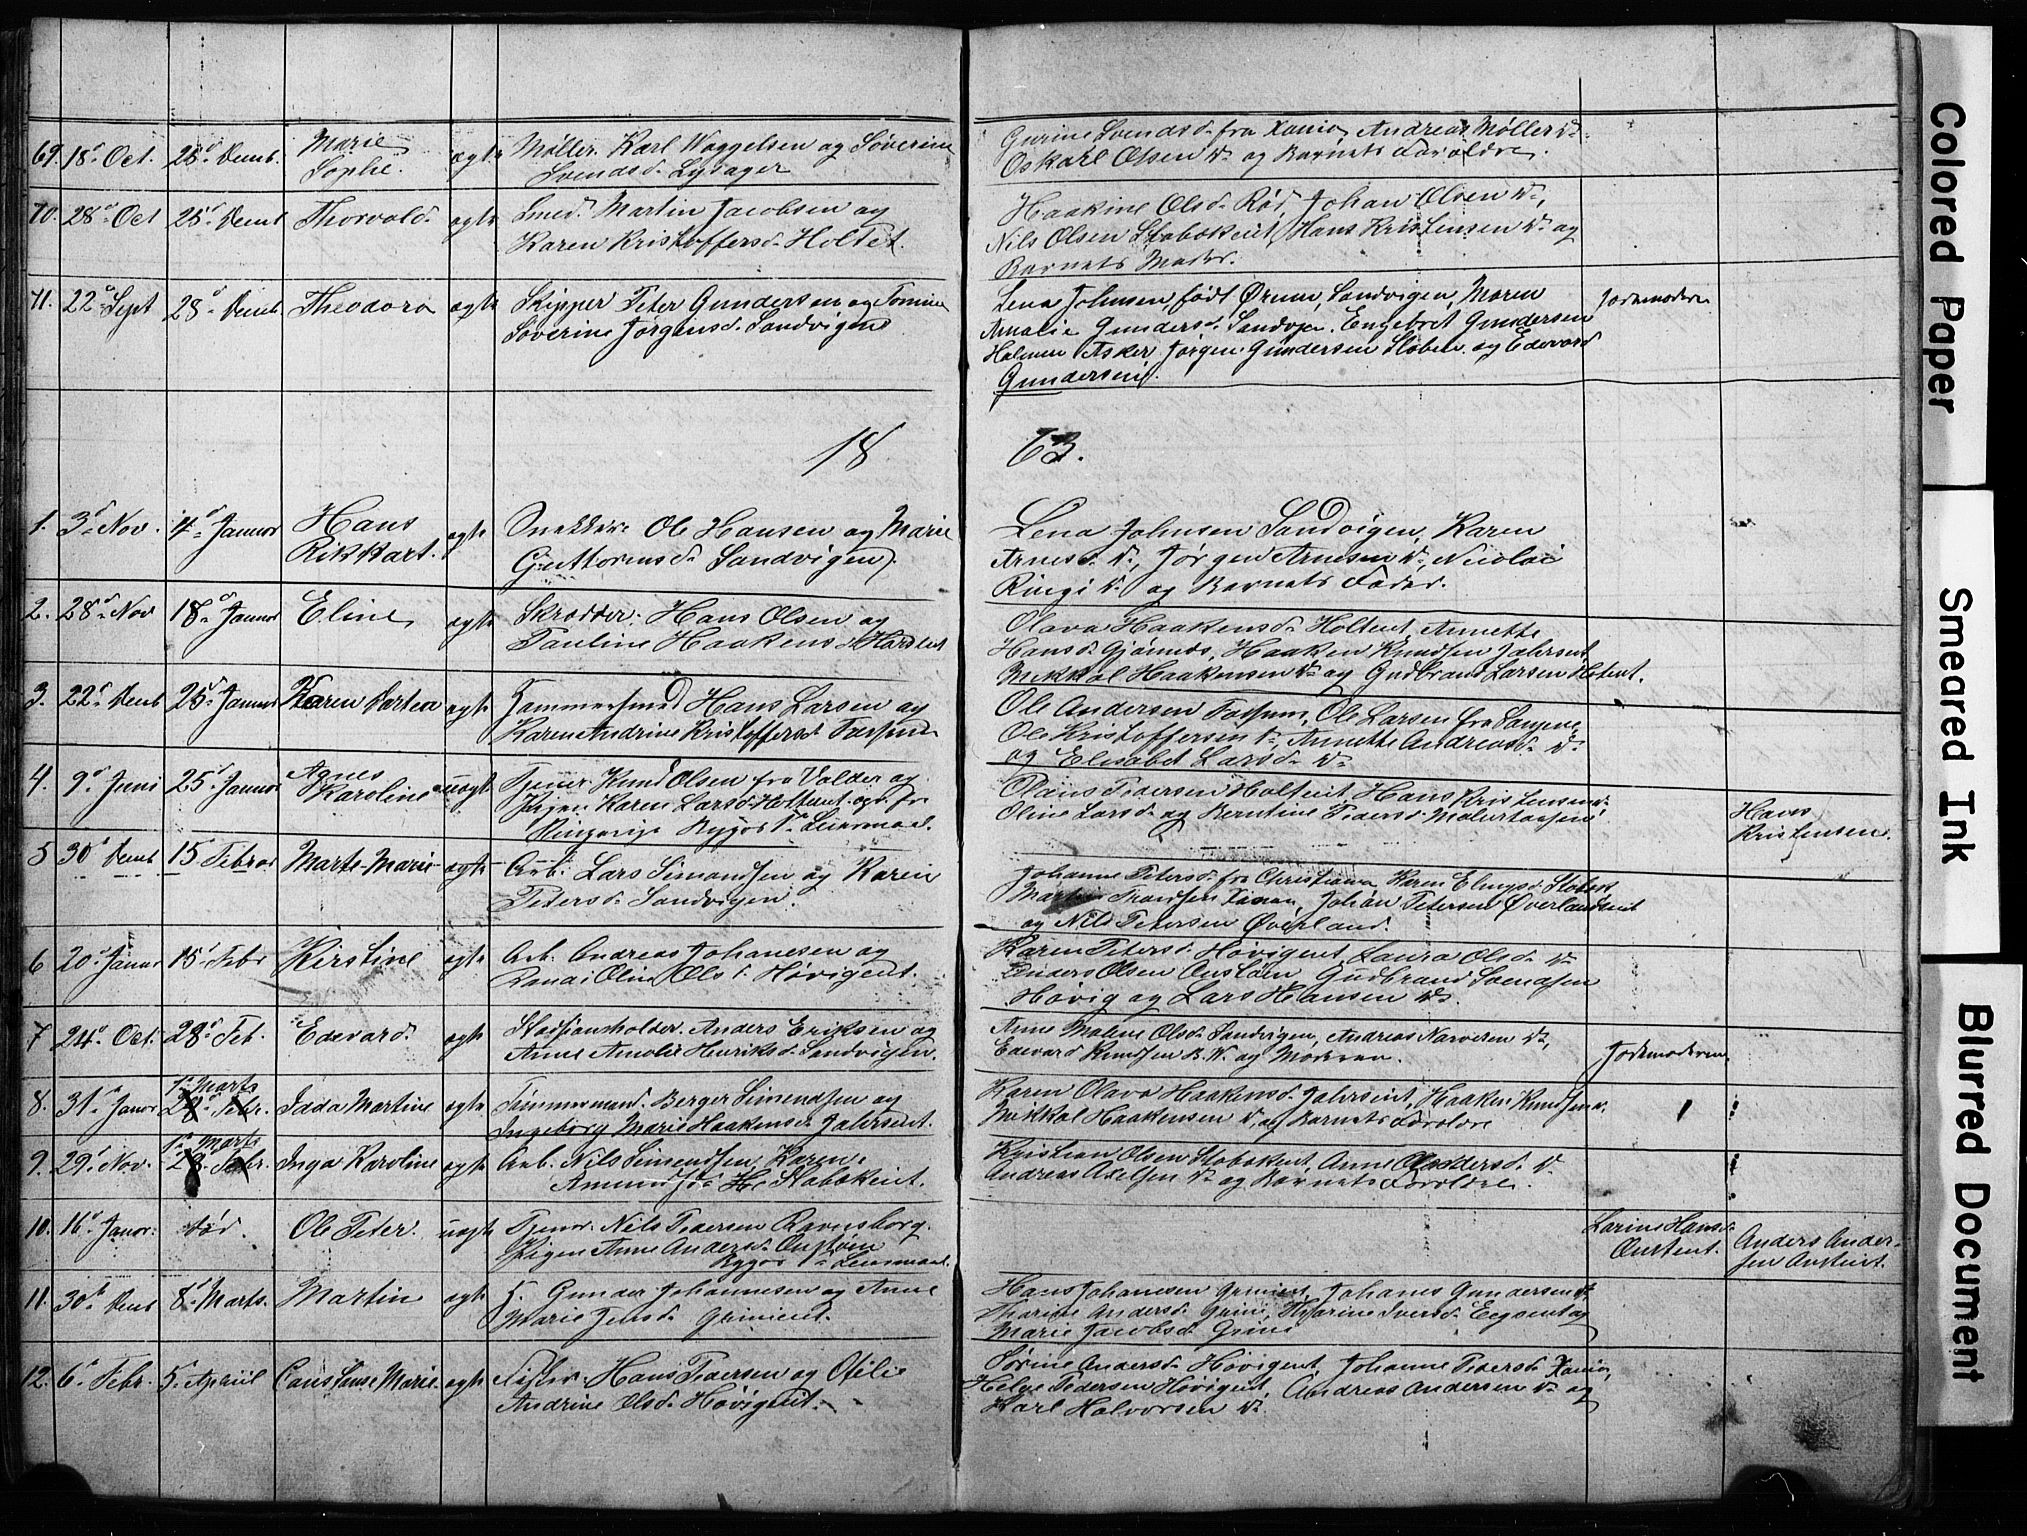 69. 18d Oct. 28d Decmb. Marie Sophie. ægte Møller. Karl Waggelsen og Søverine
Svendsd. Lysager
Gurine Svendsd. fra Xania, Andreas Møller ds.
Oskarl Olsen ds og Barnets Forældre.
70. 28d Oct 28d Decmb Thorvald. ægte Smed. Martin Jacobsen og
Karen Kristoffersd. Holtet.
Haakine Olsd. Rød, Johan Olsen ds,
Nils Olsen Stabækeiet, Hans Kristensen ds og
Barnets Moder.
71. 22d Sept 28d Decmb Theodora ægte Skipper Peter Gundersen og Tomine
Soverine Jørgensd. Sandvigen
Lena Johnsen født Ørum, Sandvigen, Maren
Amalie Gundersd. Sandvgn. Engebret Gundersen
Holmen i Asker, Jørgen Gundersen Slæbek. og Edevard
Gundersen.
Jordemoderen
18 63.
1. 3d Nov. 4d Januar Hans Rikkart. ægte Snekker. Ole Hansen og Marie
Guttormsd. Sandvigen.
Lena Johnsen Sandvigen, Karen
Arnesd. ds, Jørgen Arnesen ds, Nicolai
Ringi ds og Barnets Fader.
2. 28d Nov 18d Januar Eline ægte Skrædder. Hans Olsen og
Pauline Haakensd.
Olava Haakensd. Holteiet, Annette
Hansd. Gjønnes, Haaken Knudsen Jahrseiet,
Mikkal Haakensen ds og Gudbrand Larsen Holteiet.
3. 22d Decmb 25d Januar Karen Dortea ægte Hammersmed Hans Larsen og
Karen Andrine Kristoffersd. Fossum
Ole Andersen Fossum, Ole Larsen fra
Ole Kristoffersen ds, Annette Andreasd. ds
og Elisabet Larsd. ds
4. 9d Juni 25d Januar Agnes Karoline uægte Tjener Knud Olsen fra Valder og
Pigen Karen Larsd. Holteiet. opr. fra
Ringerige Begges 1ste Leiermaal.
Olaus Pedersen Holteiet, Hans Kristensen ds
Oline Larsd. og Berntine Pedersd.
Hans
Kristensen.
5 30d Decmb 15 Februar Marte Marie ægte Arb. Lars Simensen og Karen
Petersd. Sandvigen.
Johanne Petersd. fra Christiania, Karen
Johan Petersen Øverlandseiet
og Nils Petersen Øverland.
6 20d Januar 15d Febr Kirstine ægte Arb. Andreas Johanesen og
Olsd. Høvigeiet.
Karen Petersd. Høvigeiet, Laura Olsd. ds
Anders Olsen Gudbrand Svendsen
Høvig og Lars Hansen ds.
7 24d Oct. 28d Feb. Edevard. ægte Anders Eriksen og
Anne Amalie Henriksd. Sandvigen.
Anne Malene Olsd. Sandvigen, Andreas Narvesen ds,
Edevard Knudsen og Moderen.
Jordemoderen
8. 31d Januar 1ste Marts 28d Febr. Idda Martine ægte Tømmermand. Berger Simensen og
Ingeborg Marie Haakensd. Jahrseiet.
Karen Olava Haakensd. Jahrseiet, Haaken Knudsen ds.
Mikkal Haakensen ds, og Barnets Forældre
9. 29d Nov. 1ste Marts 28. Febr. Inga Karoline ægte Arb. Nils Simensen, Karen
Amundsd. Stabækeiet.
Kristian Olsen Stabækeiet, Anne ds.
Andreas Axelsen ds og Barnets Forældre.
10. 16d Januar. død. Ole Peter. uægte Tjener. Nils Pedersen Ravnsborg.
Pigen Anne Andersd.
Begges 1ste Leiermaal.
Larine Hansd.
Anders Ander-
sen
11. 30d Decmb 8d Marts. Martin ægte H. Gunder Johannesen og Anne
Marie Jensd. Grinieiet.
Hans Johanesen Grinieiet, Johanes Gundersen ds
Marthe Andersd. Grini, Iversd. og
Marie Jacobsd. Grini
12. 6d Febr. 5. Apriil Marie. ægte Fisker. Hans Pedersen og Ofelie
Andrine Olsd. Høvigeiet.
Sørine Andersd. Høvigeiet, Johanne Pedersd. Xania,
Helge Pedersen Høvigeiet, Andreas Andersen ds og
Karl Halvorsen ds
Colored Paper
Smeared Ink
Blurred Document